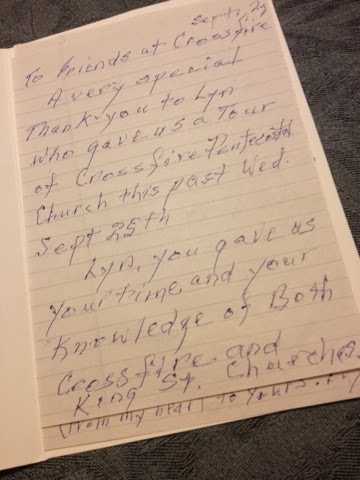 Sept, 29
To Friends at Crossfire
A very special
Thank-you to Lyn
who gave us a Tour
of Crossfire Pentecostal
Church this past Wed.
Sept 25th
Lyn, you gave us
your time and your
Knowledge of Both
Crossfire and
King St. Churches.
from my heart to yours